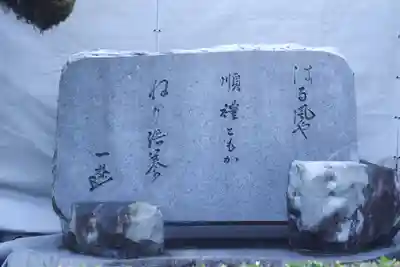 はる風や
順禮ともか
ねり供養
一茶